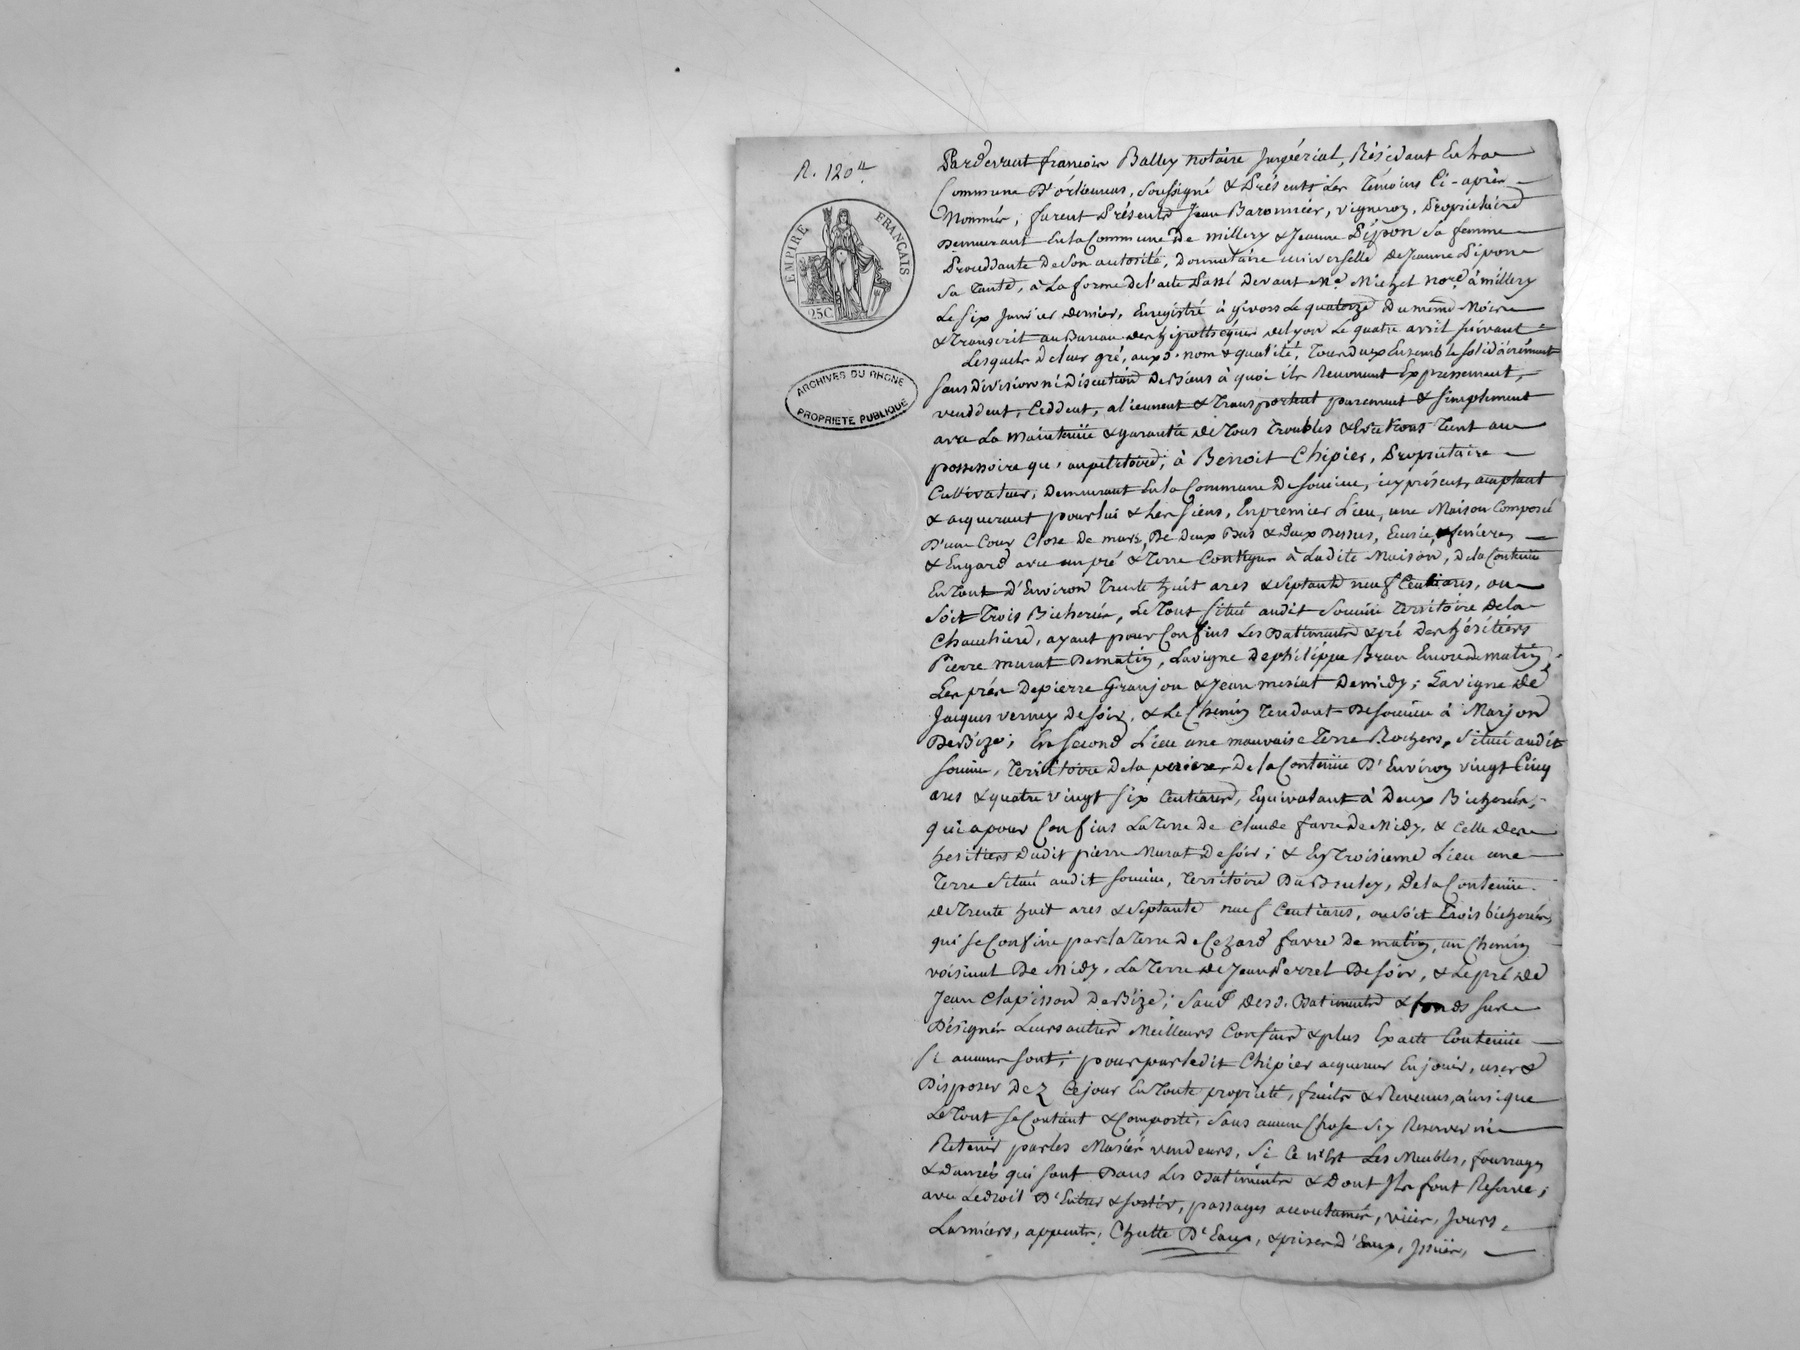 R. 120 #
EMPIRE FRANÇAIS
25C
ARCHIVES DU RHONE
PROPRIETE PUBLIQUE
Pardevant françois Balley notaire Impérial, Résidant En la
Commune D'orliennas, soussigné & Présents Les Témoins Ci-après
Nommés, furent Présents Jean Baronnier, vigneron, Propriétaire
Demeurant En la Commune De millery & Jeanne Pipon sa femme
Procédante De son autorité, Donnataire universelle de Jeanne Pipon
sa Tante, à La forme de l'acte Passé Devant Me. Niezet nore. à millery
Le six Janvier dernier, Enregistré à givors Le quatorze Du même Mois
& Transcrit au Bureau des hipotheques de Lyon Le quatre avril suivant
Lesquels De leur gré, aux d. nom & qualité, Tous deux Ensemble solidairement
sans division ni Discution De Biens à quoi ils Renoncent Expressement,
venddent, Ceddent, alienent & Transportent purement & simplement
avec La Maintenüe & garantie de Tous Troubles & Evictions Tant au
possessoire qu'au petitoire, à Benoit Chipier, Propriétaire
Cultivateur, Demeurant En la Commune De soucieu, icy présent, acceptant
& acquerant pour lui & Les siens, En premier Lieu, une Maison Composé
D'une Cour Close de murs, De Deux Bas & Deux Dessus, Ecurie, & fenieres
& Engard avec un pré & Terre Contigus à Ladite Maison, De la Contenüe
En Tout D'Environ Trente huit ares & septante neuf Centiares, ou
soit Trois Bicherées, Le Tout situé audit soucieu Territoire De la
Chauchiere, ayant pour Confins Les Batiments & pré Des héritiers
Pierre murat De matin, La vigne De philippe Brun Encore de matin,
Les prés De pierre Granjon & Jean murat De midy; La vigne De
Jacques verney De soir, & Le Chemin Tendant De soucieu à Marjon
De Bize; En second Lieu une mauvaise Terre Rochers, située audit
soucieu, Territoire De la De la Contenüe D'Environ vingt Cinq
ares & quatre vingt six Centiares, Equivalant à Deux Bicherées,
qui a pour Confins La Terre De Claude favre De Midy, & Celle Des
heritiers Dudit pierre Murat De soir; & En Troisieme Lieu une
Terre située audit soucieu, Territoire Du Bruley, De la Contenüe
de Trente huit ares & septante neuf Centiares, ou soit Trois bicherées,
qui se Confine par La Terre De Cezard favre De matin, un Chemin
voisinal De Midy, La Terre de Jean Perret De soir, & Le pré De
Jean Clapisson De Bize; sauf des d. Batiments & fonds sus
Désignés Leurs autres Meilleurs Confins & plus Exacte Contenüe
si aucuns sont; pour par ledit Chipier acquereur En jouir, user &
Disposer Dez Ce jour En Toute propriété, fruits & Revenus, ainsi que
Le Tout se Contient & Comporte, sans aucune Chose s'y Reserver ni
Retenir par les Mariés vendeurs, si Ce n'Est Les Meubles, fourrages
& Danrées qui sont Dans Les Batiments & Dont Ils font Reserve;
avec Le droit D'Entrer & sortir, passages accoutumés, vües, Jours,
Larmiers, appents, Chutte D'Eaux, & prises d'Eaux, Issües,